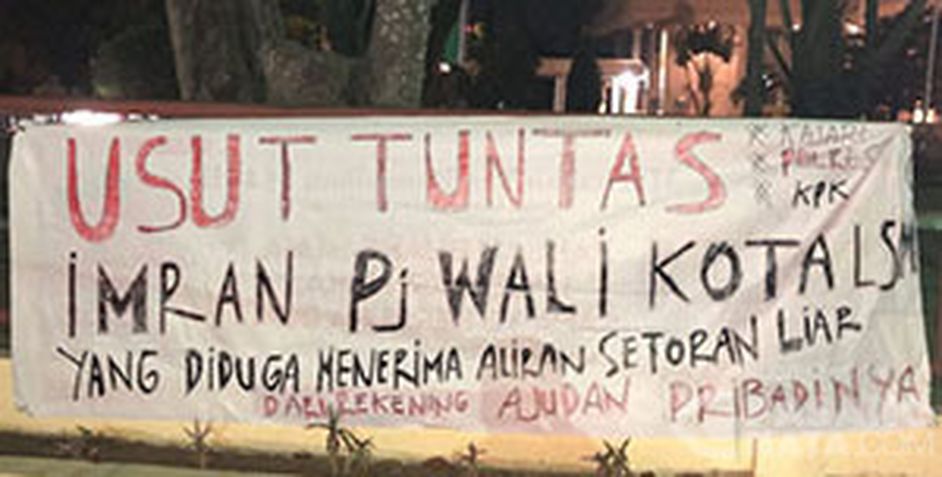 USUT TUNTAS
* KAJARI
* POLRES
* KPK
IMRAN Pj WALI KOTA LSM
YANG DIDUGA MENERIMA ALIRAN SETORAN LIAR
DARI REKENING AJUDAN PRIBADINYA